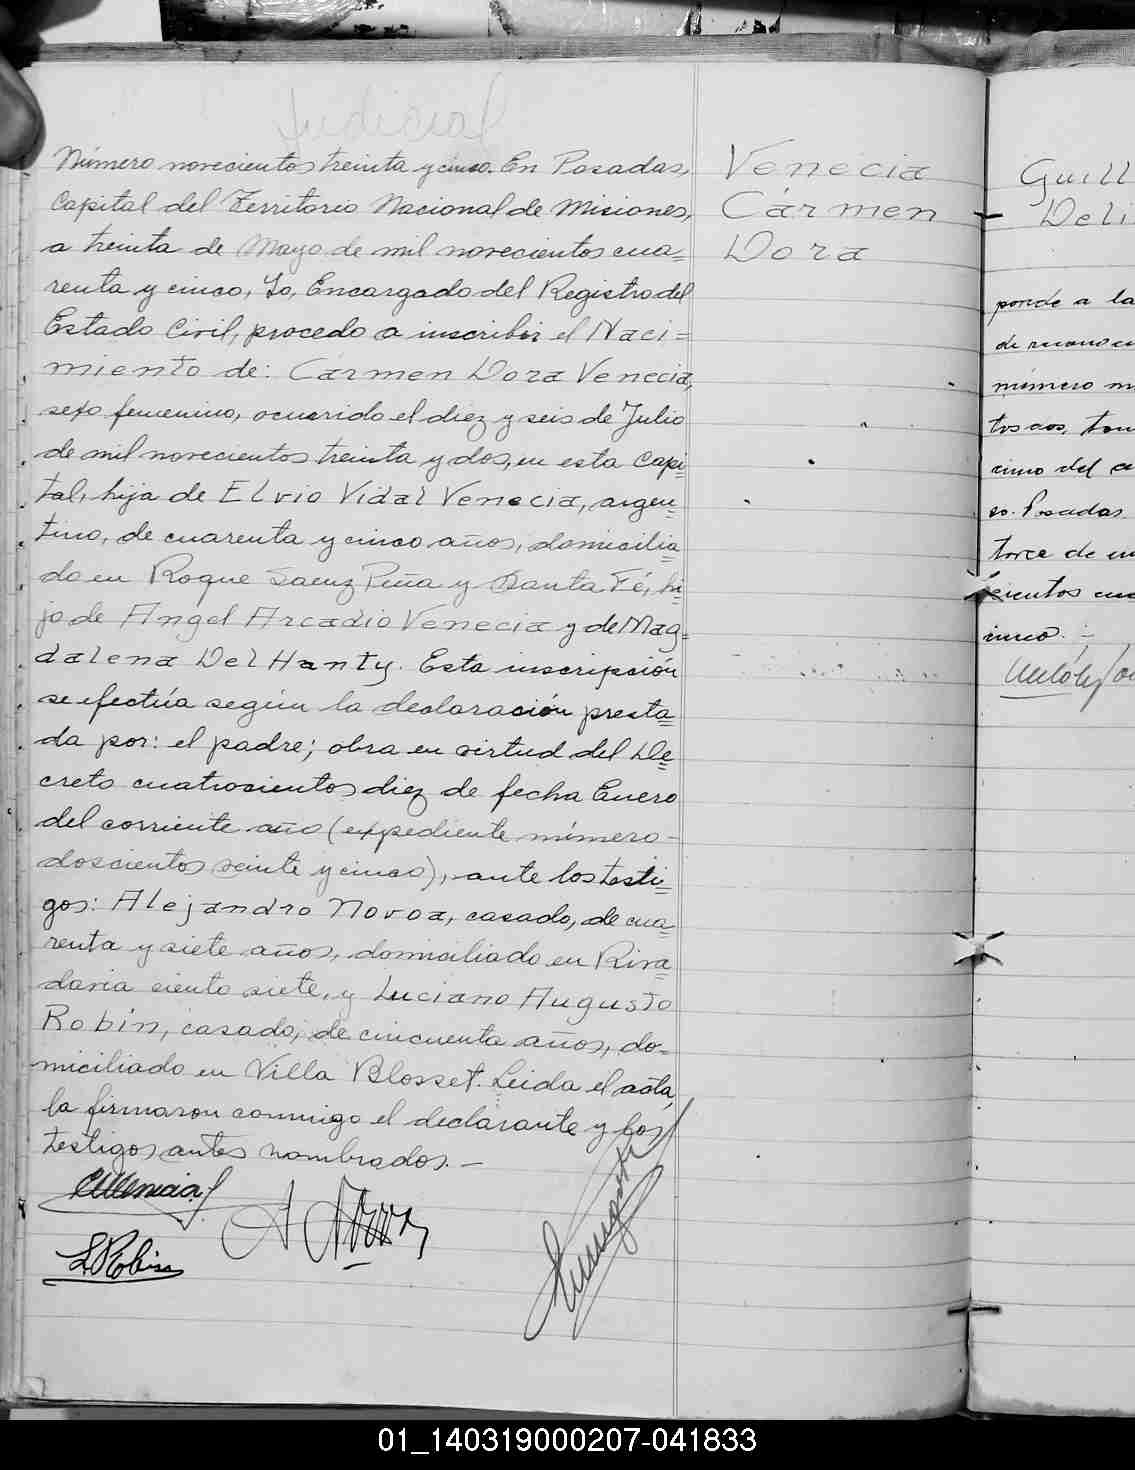 Judicial
Número novecientos treinta y cinco. En Posadas,
Capital del Territorio Nacional de Misiones,
a treinta de Mayo de mil novecientos cua=
renta y cinco, Yo, Encargado del Registro del
Estado Civil, procedo a inscribir el Naci=
miento de: Cármen Dora Venecia,
sexo femenino, ocurrido el diez y seis de Julio
de mil novecientos treinta y dos, en esta Capi=
tal, hija de Elvio Vidal Venecia, argen=
tino, de cuarenta y cinco años, domicilia=
do en Roque Saenz Peña y Santa Fé, hi=
jo de Angel Arcadio Venecia y de Mag=
dalena Del Hanty. Esta inscripción
se efectúa según la declaración presta=
da por: el padre; obra en virtud del De=
creto cuatrocientos diez de fecha Enero
del corriente año (expediente número-
doscientos veinte y cinco), ante los testi=
gos: Alejandro Novoa, casado, de cua=
renta y siete años, domiciliado en Riva=
davia ciento siete, y Luciano Augusto
Robín, casado, de cincuenta años, do=
miciliado en Villa Blosset. Leida el acta,
la firmaron conmigo el declarante y los
testigos antes nombrados.—
Venecia
Cármen
Dora
L Robin
A Novoa
Guill
Deli
ponde a la
de
número
tos dos, tom
cimo del
so. Posadas
torce de
cientos
cinco.-
01_140319000207-041833